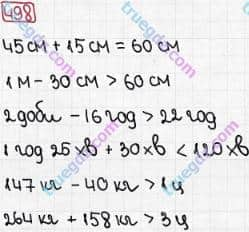 498
45 см + 15 см = 60 см
1 м - 30 см > 60 см
2 доби - 16 год > 22 год
1 год 25 хв + 30 хв < 120 хв
147 кг - 40 кг > 1 ц
264 кг + 158 кг > 3 ц
truegdz.com